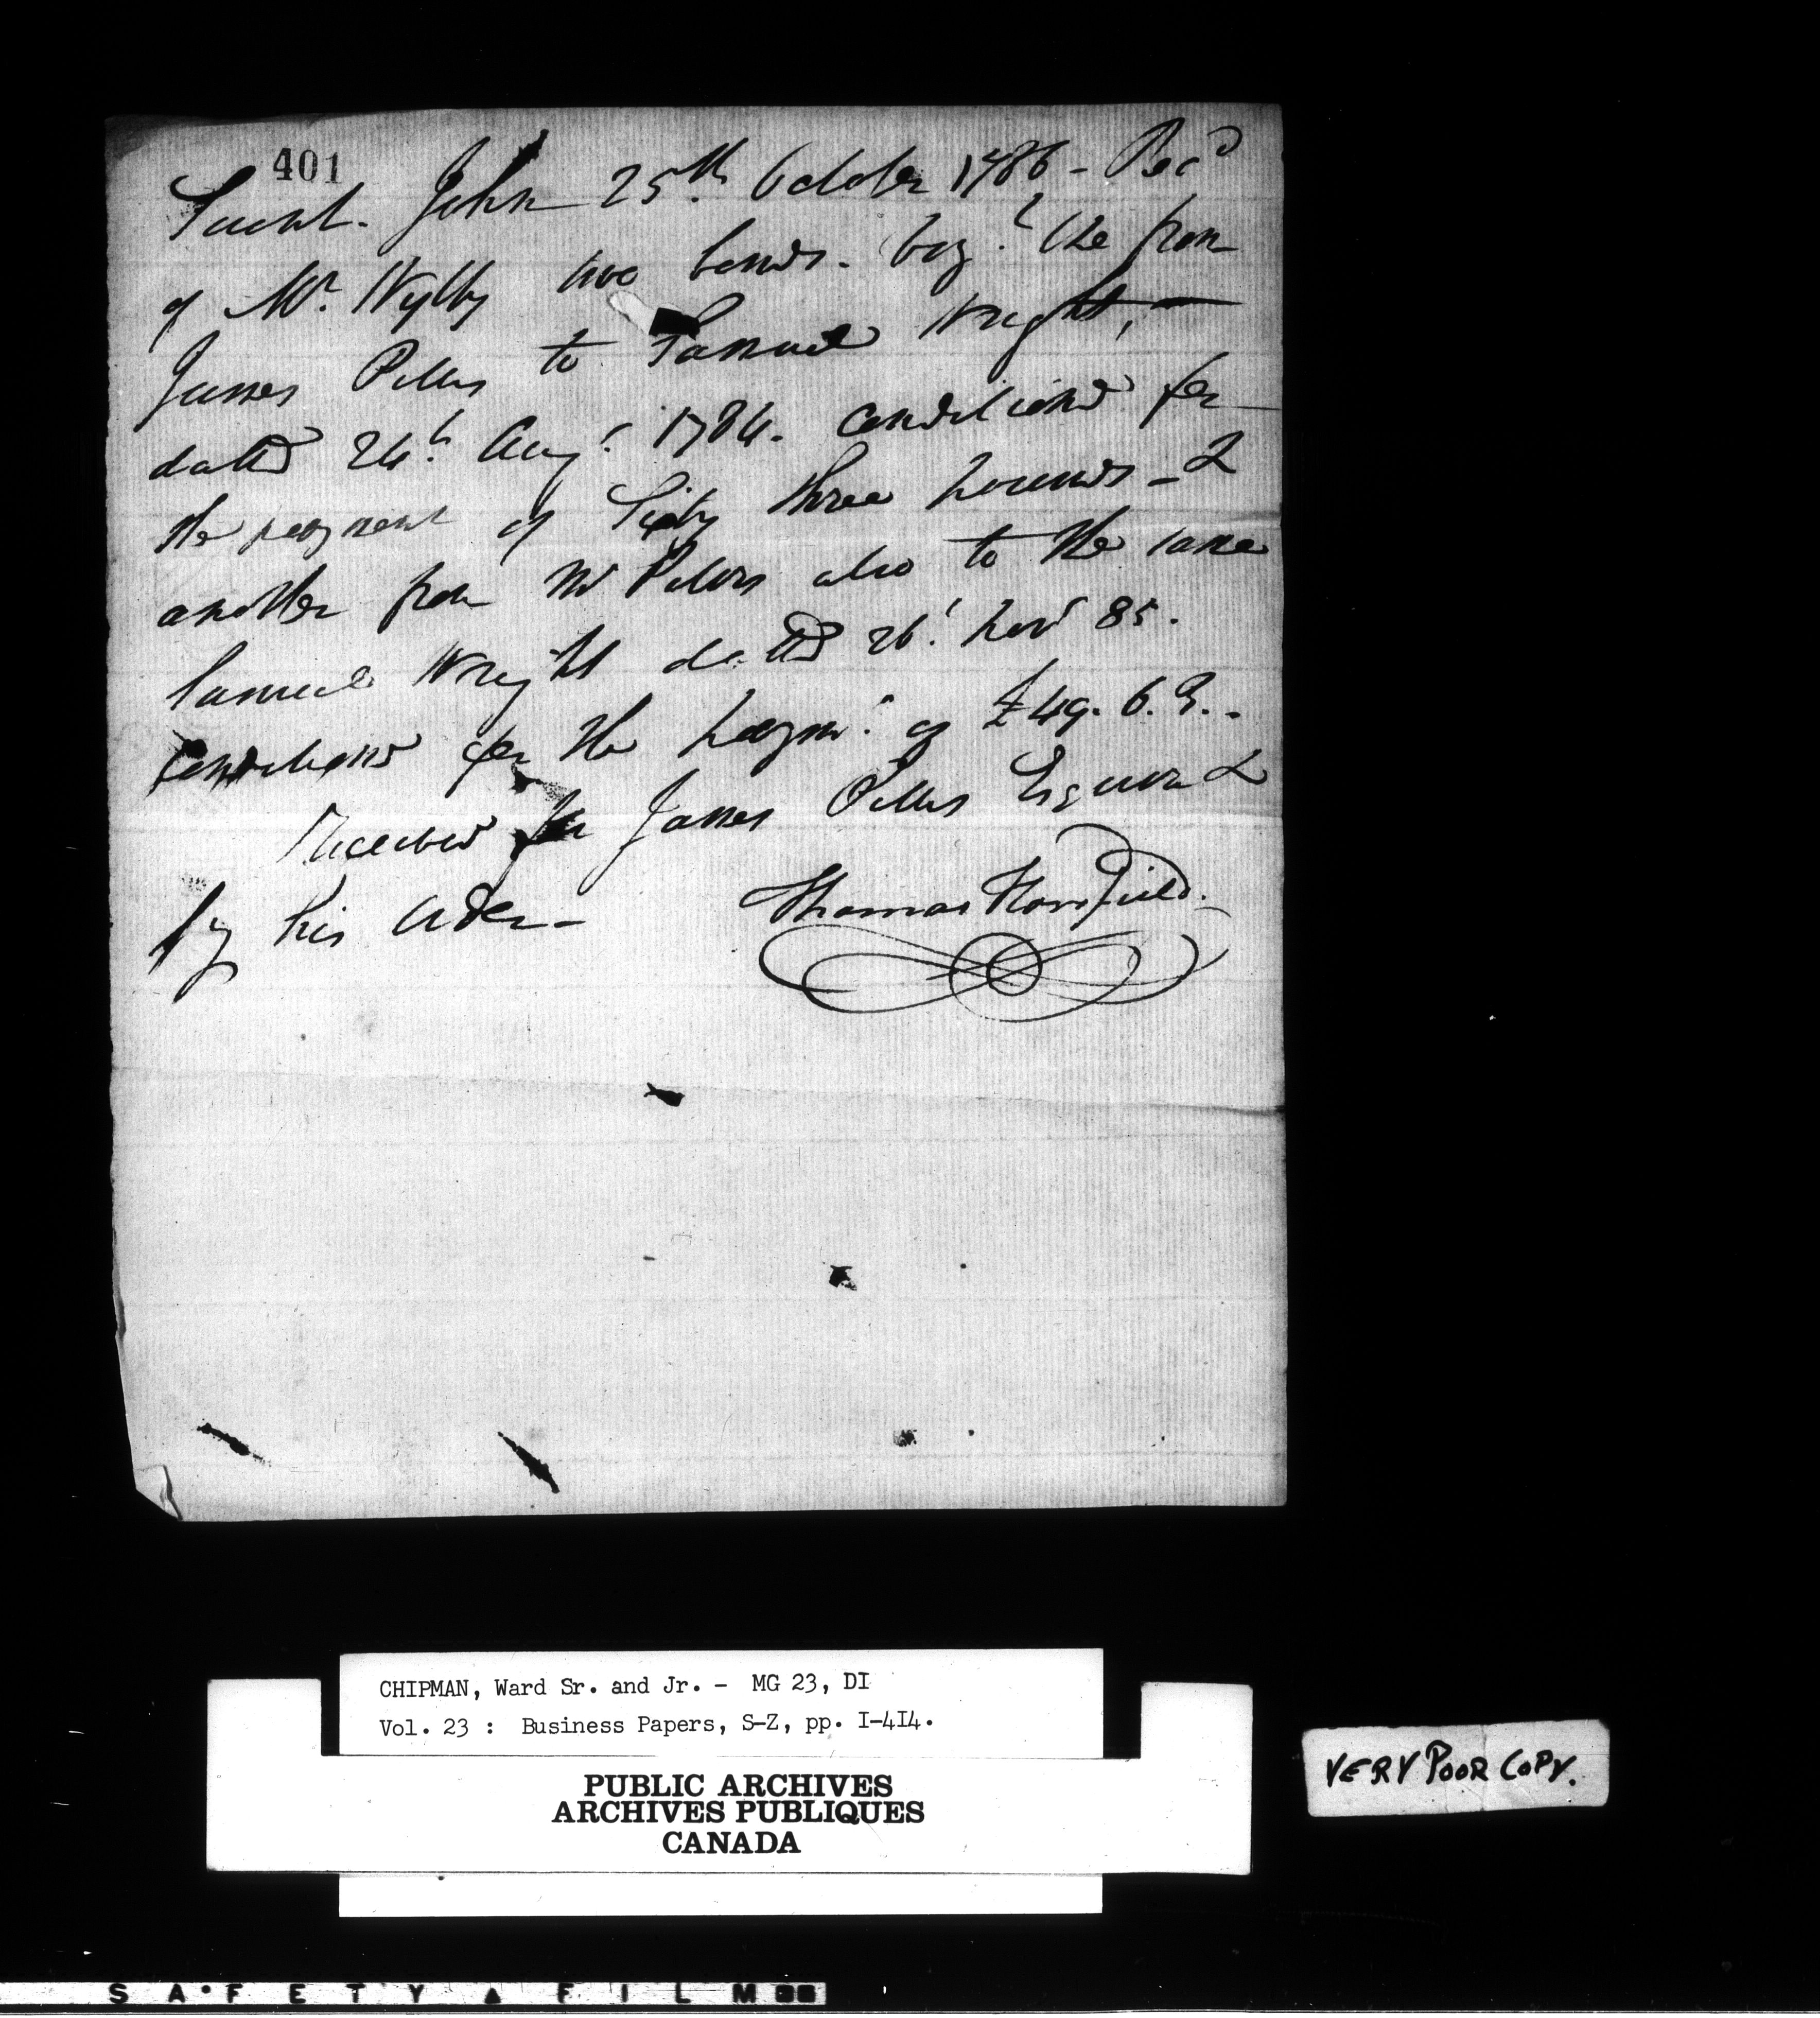 401
Saint John 25th October 1786 - Recd
of Mr. Wylly two bonds. Viz.t One from
James Peters to Samuel Wright, —
dated 24.h Aug.t 1784. conditiond for
the payment of Sixty three pounds - &
another from Mr Peters also to the same
Samuel Wright dated 26.t Novr 85.
conditiond for the paym.t of £49. 6. 3. -
Received for James Peters Esquire &
by his order - Thomas Horsfield.
CHIPMAN, Ward Sr. and Jr. - MG 23, DI
Vol. 23 : Business Papers, S-Z, pp. I-4I4.
PUBLIC ARCHIVES
ARCHIVES PUBLIQUES
CANADA
VERY POOR COPY.
SAFETY FILM